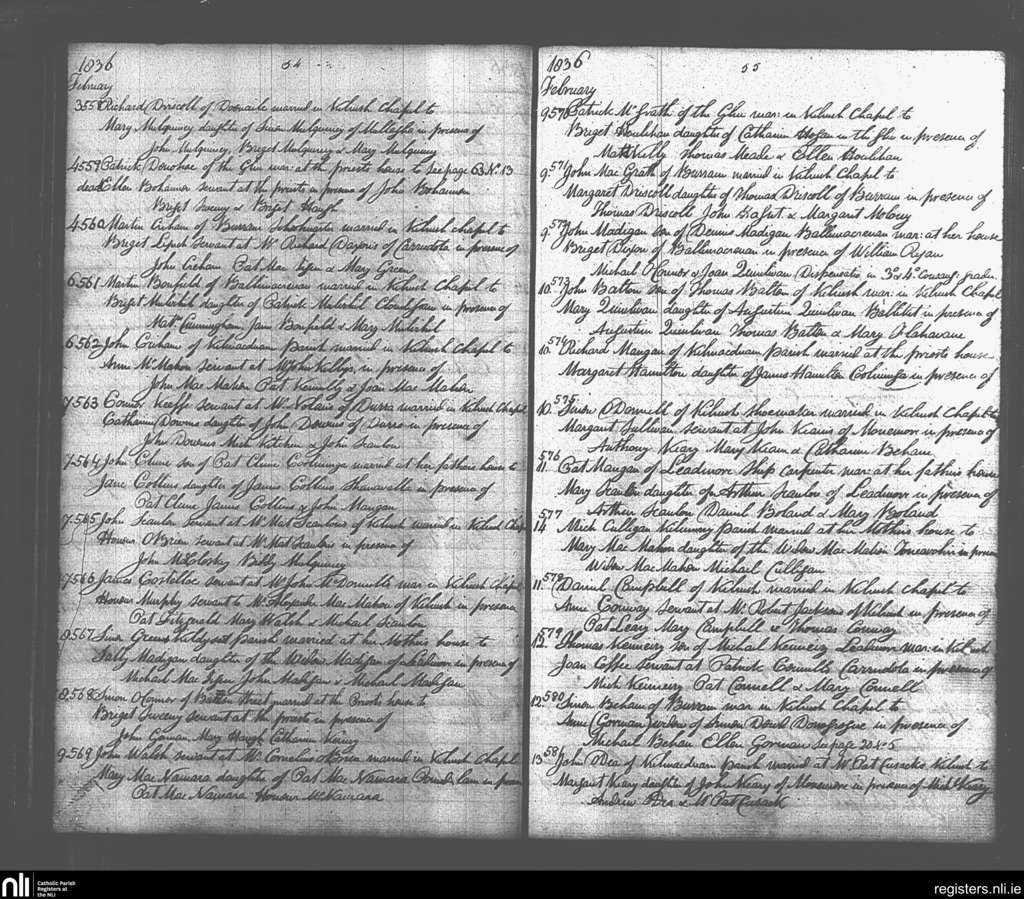 1836
54
February
3 558 Richard Driscoll of married in Kilrush Chapel to
Mary Mulqueeny daughter of Simon Mulqueeny of in presence of
John Mulqueeny Briget Mulqueeny & Mary Mulqueeny
4 559 Patrick Donohoe of the Glin mar: at the priests house to see page 63 No. 13
dead Ellen Bohannon servant at the priests in presence of John Bohannon
Briget Sweeny & Briget Haugh
4 560 Martin of Burrane married in Kilrush chapel to
Briget servant at Mr Richard of Carradota in presence of
John Pat Mac & Mary Green
6 561 Martin Bonfield of Ballimacrenan married in Kilrush Chapel to
Briget daughter of Patrick in presence of
Nat. Cunningham Jane Bonfield & Mary
6 562 John of Kilmacduan parish married in Kilrush Chapel to
Ann McMahon servant at Mr John Kellys in presence of
John Mac Mahon Pat Kennelly & Joan Mac Mahon
7 563 Connor Keeffe servant at Mr Nolans of married in Kilrush Chapel
Catharine Downs daughter of John Downes of in presence of
John Downes Mich Kitchen & John Scanlon
7 564 John Clune son of Pat Clune married at her fathers house to
Jane Collins daughter of James Collins in presence of
Pat Clune James Collins & John Mangan
7 565 John Scanlon servant at Mr Mat Scanlons of Kilrush married in Kilrush Chap
Honour O'Brien servant at Mr Mat Scanlons in presence of
John McCloskey Biddy Mulqueeny
7 566 James Costelloe servant at Mr John McDonnells mar in Kilrush Chapel
Honour Murphy servant to Mr Alexander Mac Mahon of Kilrush in presence
Pat Fitzgerald Mary Walsh & Michael Scanlon
8 567 Simon Greene Kildysart parish married at her Mothers house to
Sally Madigan daughter of the Widow Madigan of in presence of
Michael Mac John Madigan & Michael Madigan
8 568 Simon OConnor of Street married at the Priests house to
Briget Sweeny servant at the priests in presence of
John Gorman Mary Haugh Catharine
9 569 John Walsh servant at Mr Cornelius married in Kilrush Chapel
Mary Mac Namara daughter of Pat Mac Namara lane in presence
Pat Mac Namara Honour McNamara
1836
55
February
9 570 Patrick McGrath of the Glin mar: in Kilrush Chapel to
Briget Houlihan daughter of Catharine Hogan in the Glin in presence of
Matt Kelly Thomas Meade & Ellen Houlihan
9 571 John Mac Grath of Burrane married in Kilrush Chapel to
Margaret Driscoll daughter of Thomas Driscoll of Burrane in presence of
Thomas Driscoll John & Margaret Molony
9 572 John Madigan son of Dennis Madigan Ballimacrenan mar: at her house
Briget Dixon of Ballimacrenan in presence of William Ryan
Michael OConnor & Joan Quinlivan Dispensatis in 3o & 4o gradu
10 573 John Batton son of Thomas Batton of Kilrush mar: in Kilrush Chapel
Mary Quinlivan daughter of Augustin Quinlivan in presence of
Augustin Quinlivan Thomas Batton & Mary Flahavane
10 574 Richard Mangan of Kilmacduan Parish married at the priests house
Margaret Hamilton daughter of James Hamilton in presence of
575
10 Simon ODonnell of Kilrush Shoemaker married in Kilrush Chapel to
Margaret Sullivan servant at John of Monemore in presence of
Anthony Mary & Catharine Behane
576
11 Pat Mangan of Leadmore Ship Carpenter mar: at her fathers house
Mary Scanlon daughter of Arthur Scanlon of Leadmore in presence of
Arthur Scanlon Daniel Boland & Mary Boland
577
14 Mich Culligan parish married at her Mothers house to
Mary Mac Mahon daughter of the Widow Mac Mahon in presence
Widow Mac Mahon Michael Culligan
11 578 Daniel Campbell of Kilrush married in Kilrush chapel to
Anne Conway servant at Mr Robert Jacksons of Kilrush in presence of
Pat Leary Mary Campbell & Thomas Conway
579
12 Thomas son of Michael Leadmore mar: in Kilrush
Joan Coffee servant at Patrick Connells Carradota in presence of
Mich Pat Connell & Mary Connell
580
12 Simon Behane of Burrane mar in Kilrush Chapel to
Anne Gorman widow of Simon in presence of
Michael Behan Ellen Gorman see page 20 No 5
581
13 John ODea of Kilmacduan parish married at Mr Pat Cusacks Kilrush to
Margaret daughter of John of Monemore in presence of Mich
Andrew Dea & Mr Pat Cusack
nli
Catholic Parish
Registers at
the NLI
registers.nli.ie